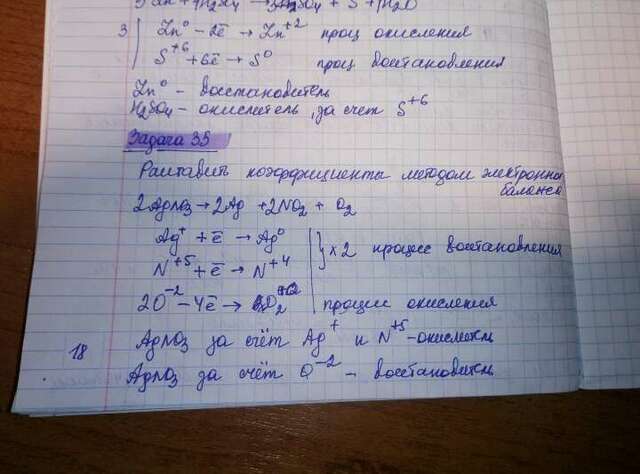 3Zn + 4H₂SO₄ → 3ZnSO₄ + S + 4H₂O
3 | Zn⁰ - 2ē → Zn⁺² проц окисления
S⁺⁶ + 6ē → S⁰ проц востановления
Zn⁰ - восстановитель
H₂SO₄ - окислитель, за счет S⁺⁶
Задача 35
Раставить коэффициенты методом электронно
баланса
2AgNO₃ → 2Ag + 2NO₂ + O₂
Ag⁺ + ē → Ag⁰
} x2 процесс востановления
N⁺⁵ + ē → N⁺⁴
2O⁻² - 4ē → O₂⁰ процесс окисления
AgNO₃ за счёт Ag⁺ и N⁺⁵ - окислитель
18
AgNO₃ за счёт O⁻² - восстановитель